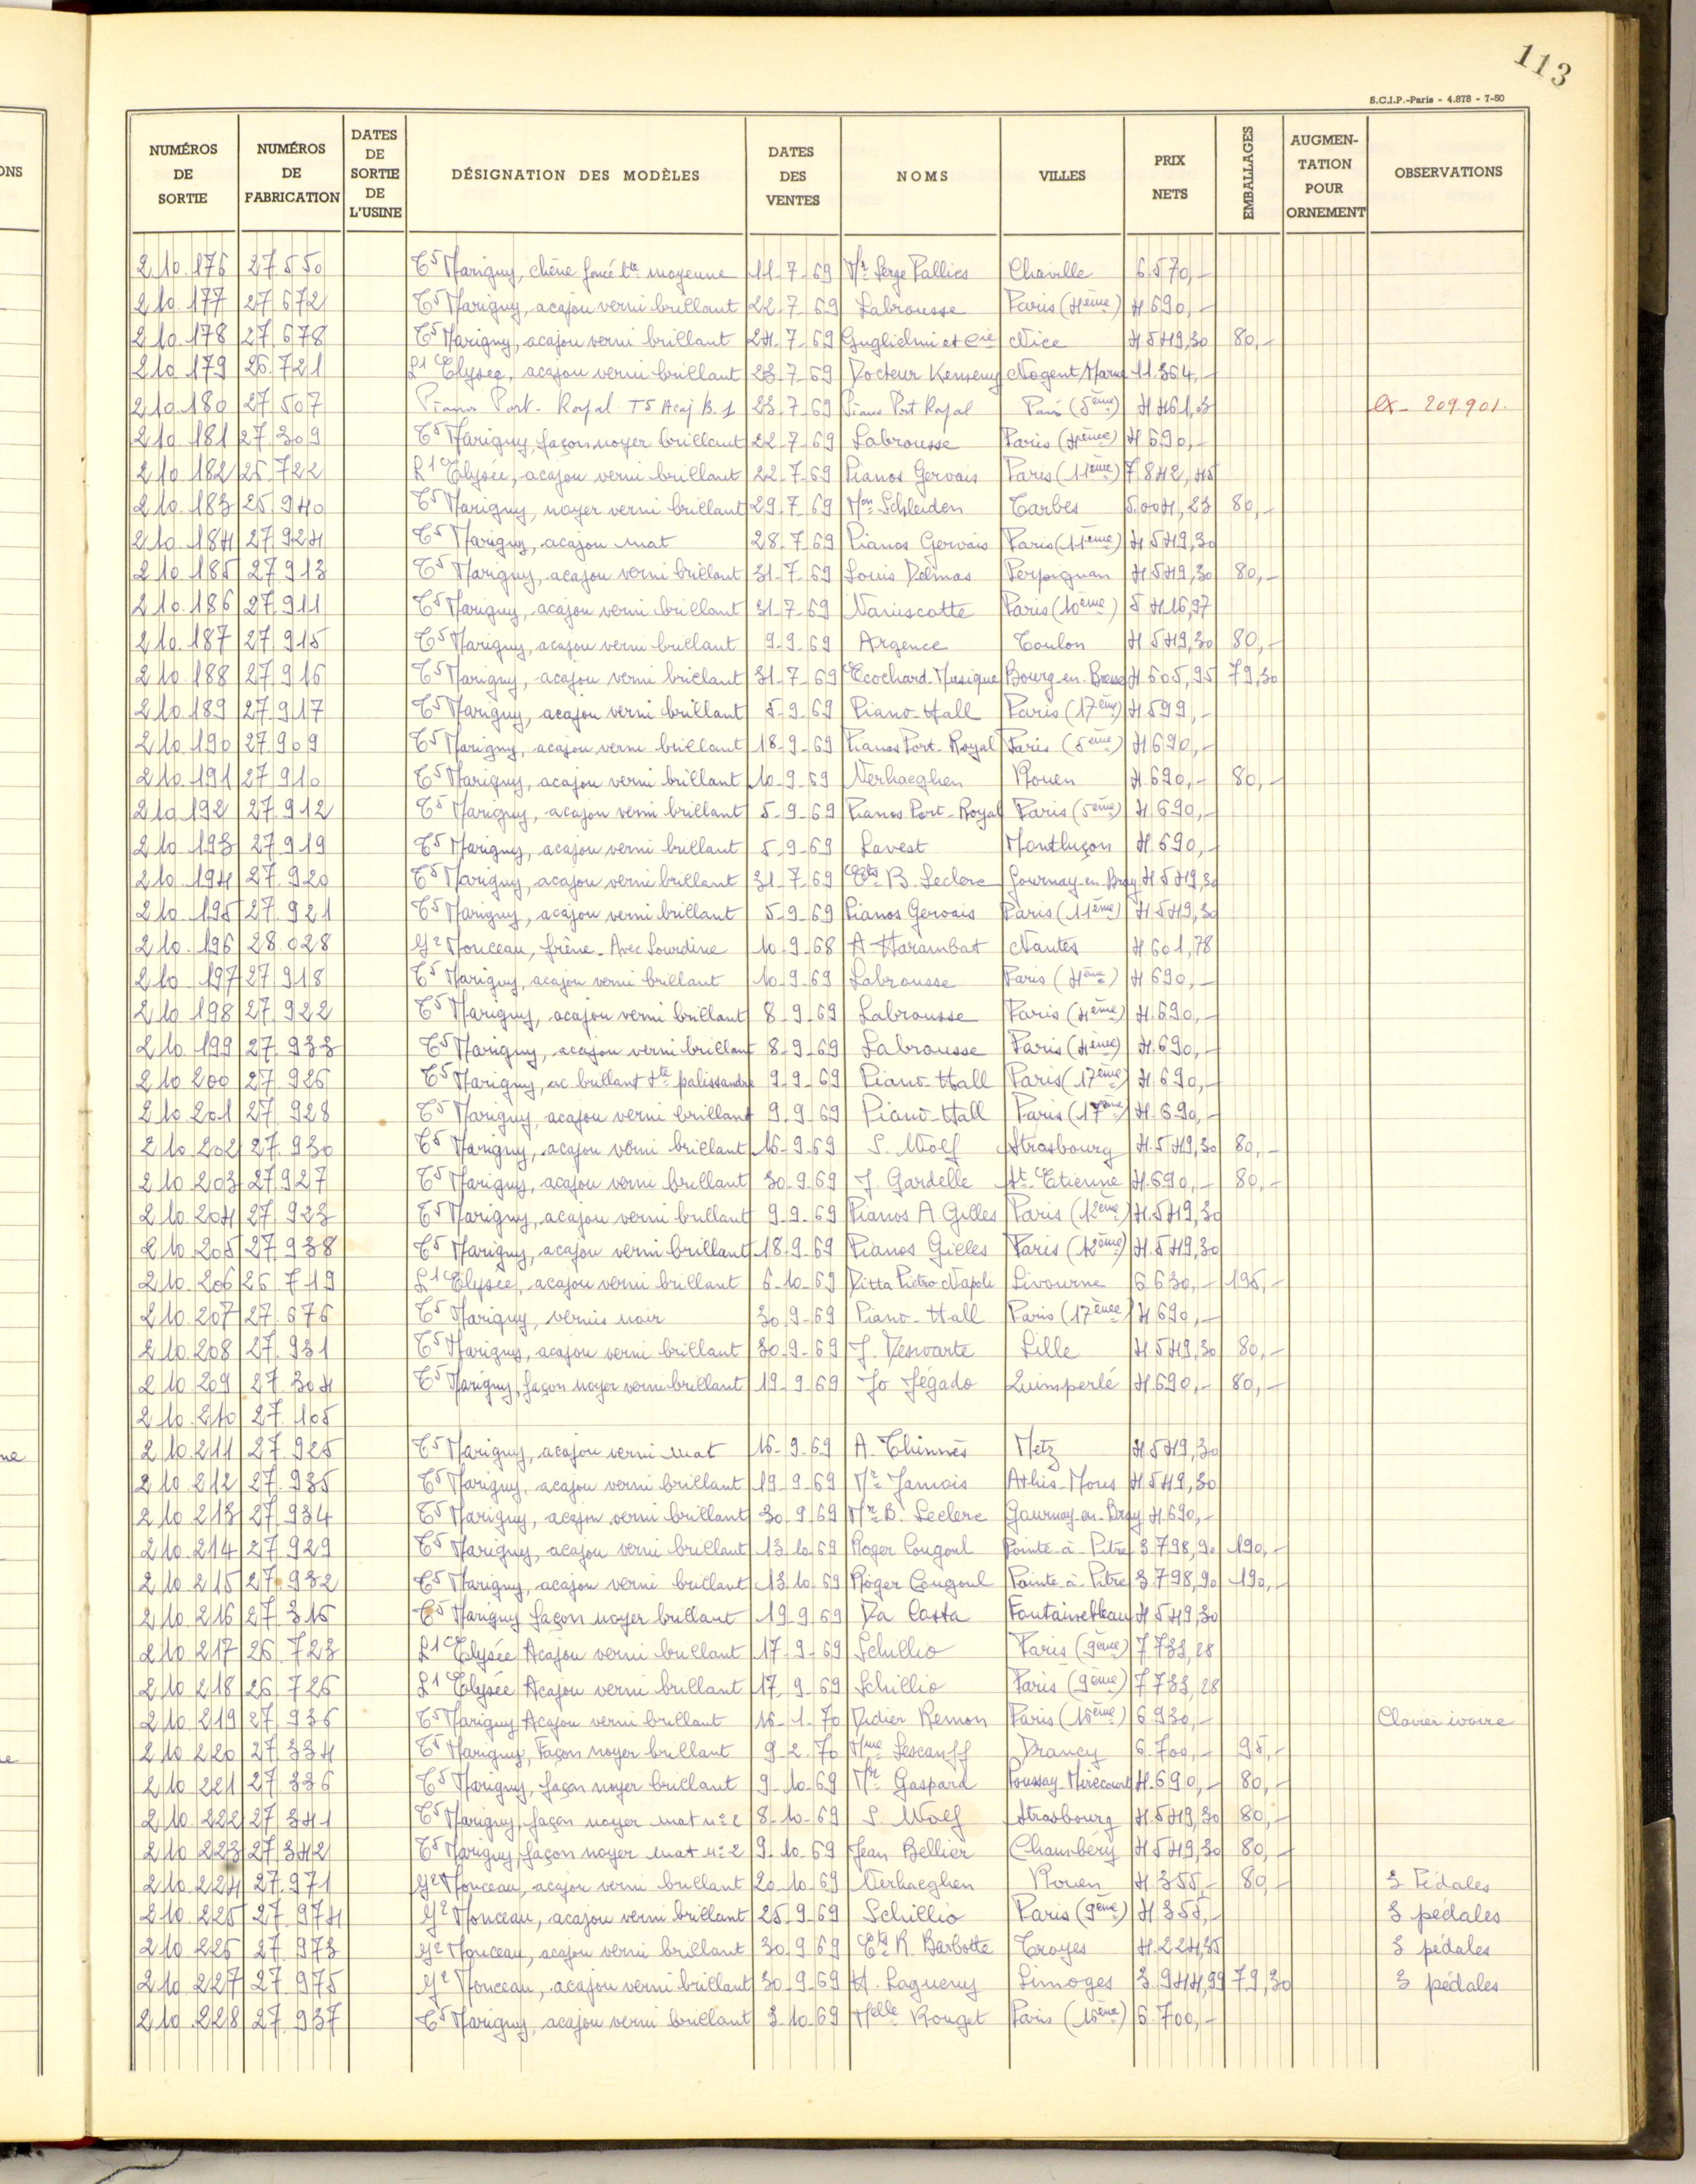 113
S.C.I.P.-Paris - 4.878 - 7-50
NUMÉROS DE SORTIE | NUMÉROS DE FABRICATION | DATES DE SORTIE DE L'USINE | DÉSIGNATION DES MODÈLES | DATES DES VENTES | NOMS | VILLES | PRIX NETS | EMBALLAGES | AUGMEN-TATION POUR ORNEMENT | OBSERVATIONS
210.176 27.550 T5 Marigny, chêne foncé tte moyenne 11-7-69 Mr Serge Pallies Chaville 6.570,-
210.177 27.672 T5 Marigny, acajou verni brillant 22-7-69 Labrousse Paris (4ème) 4.690,-
210.178 27.678 T5 Marigny, acajou verni brillant 24-7-69 Guglielmi et Cie Nice 4.549,30 80,-
210.179 26.721 L1 Elysée, acajou verni brillant 23-7-69 Docteur Nogent/Marne 11.364,-
210.180 27.507 Pianos Port-Royal T5 Acaj. B. 23-7-69 Piano Port Royal Paris (5ème) 4.461,03 ex-209.901.
210.181 27.309 T5 Marigny, façon noyer brillant 22-7-69 Labrousse Paris (4ème) 4.690,-
210.182 26.722 L1 Elysée, acajou verni brillant 22-7-69 Pianos Gervais Paris (11ème) 7.842,45
210.183 25.940 T5 Marigny, noyer verni brillant 29-7-69 Mon Schleiden Tarbes 5.004,23 80,-
210.184 27.924 T5 Marigny, acajou mat 28-7-69 Pianos Gervais Paris (11ème) 4.549,30
210.185 27.913 T5 Marigny, acajou verni brillant 31-7-69 Louis Delmas Perpignan 4.549,30 80,-
210.186 27.911 T5 Marigny, acajou verni brillant 31-7-69 Variscotte Paris (10ème) 5.416,97
210.187 27.915 T5 Marigny, acajou verni brillant 9-9-69 Argence Toulon 4.549,30 80,-
210.188 27.916 T5 Marigny, acajou verni brillant 31-7-69 Ecochard-Musique Bourg-en-Bresse 4.605,95 79,30
210.189 27.917 T5 Marigny, acajou verni brillant 5-9-69 Piano-Hall Paris (17ème) 4.599,-
210.190 27.909 T5 Marigny, acajou verni brillant 18-9-69 Pianos Port-Royal Paris (5ème) 4.690,-
210.191 27.910 T5 Marigny, acajou verni brillant 10-9-69 Verhaeghen Rouen 4.690,- 80,-
210.192 27.912 T5 Marigny, acajou verni brillant 5-9-69 Pianos Port-Royal Paris (5ème) 4.690,-
210.193 27.919 T5 Marigny, acajou verni brillant 5-9-69 Lavest Montluçon 4.690,-
210.194 27.920 T5 Marigny, acajou verni brillant 31-7-69 Ets B. Leclerc Gournay-en-Bray 4.549,30
210.195 27.921 T5 Marigny, acajou verni brillant 5-9-69 Pianos Gervais Paris (11ème) 4.549,30
210.196 28.028 Y2 Monceau, frêne. Avec Sourdine 10-9-68 A. Harambat Nantes 4.601,78
210.197 27.918 T5 Marigny, acajou verni brillant 10-9-69 Labrousse Paris (4ème) 4.690,-
210.198 27.922 T5 Marigny, acajou verni brillant 8-9-69 Labrousse Paris (4ème) 4.690,-
210.199 27.933 T5 Marigny, acajou verni brillant 8-9-69 Labrousse Paris (4ème) 4.690,-
210.200 27.926 T5 Marigny, ac brillant tte palissandre 9-9-69 Piano-Hall Paris (17ème) 4.690,-
210.201 27.928 T5 Marigny, acajou verni brillant 9-9-69 Piano-Hall Paris (17ème) 4.690,-
210.202 27.930 T5 Marigny, acajou verni brillant 16-9-69 S. Wolf Strasbourg 4.549,30 80,-
210.203 27.927 T5 Marigny, acajou verni brillant 30-9-69 J. Gardelle St-Etienne 4.690,- 80,-
210.204 27.923 T5 Marigny, acajou verni brillant 9-9-69 Pianos A Gilles Paris (12ème) 4.549,30
210.205 27.938 T5 Marigny, acajou verni brillant 18-9-69 Pianos Gilles Paris (12ème) 4.549,30
210.206 26.719 L1 Elysée, acajou verni brillant 6-10-69 Ditta Pietro Napoli Livourne 6.630,- 195,-
210.207 27.676 T5 Marigny, vernis noir 30-9-69 Piano-Hall Paris (17ème) 4.690,-
210.208 27.931 T5 Marigny, acajou verni brillant 30-9-69 J. Deswarte Lille 4.549,30 80,-
210.209 27.304 T5 Marigny, façon noyer verni brillant 19-9-69 Jo Jégado Quimperlé 4.690,- 80,-
210.210 27.105
210.211 27.925 T5 Marigny, acajou verni mat 16-9-69 A. Thinnès Metz 4.549,30
210.212 27.935 T5 Marigny, acajou verni brillant 19-9-69 Mr Jamois Athis-Mons 4.549,30
210.213 27.934 T5 Marigny, acajou verni brillant 30-9-69 Mr B. Leclerc Gournay-en-Bray 4.690,-
210.214 27.929 T5 Marigny, acajou verni brillant 13-10-69 Roger Cougoul Pointe-à-Pitre 3.798,90 190,-
210.215 27.932 T5 Marigny, acajou verni brillant 13-10-69 Roger Cougoul Pointe-à-Pitre 3.798,90 190,-
210.216 27.315 T5 Marigny façon noyer brillant 19-9-69 Da Costa Fontainebleau 4.549,30
210.217 26.723 L1 Elysée Acajou verni brillant 17-9-69 Schillio Paris (9ème) 7.733,28
210.218 26.726 L1 Elysée Acajou verni brillant 17-9-69 Schillio Paris (9ème) 7.733,28
210.219 27.936 T5 Marigny Acajou verni brillant 16-1-70 Didier Remon Paris (16ème) 6.930,- Clavier ivoire
210.220 27.334 T5 Marigny, Façon noyer brillant 9-2-70 Mme Lescauff Drancy 6.700,- 95,-
210.221 27.336 T5 Marigny, façon noyer brillant 9-10-69 Mr Gaspard Poussay-Mirecourt 4.690,- 80,-
210.222 27.341 T5 Marigny, façon noyer mat n°2 8-10-69 S. Wolf Strasbourg 4.549,30 80,-
210.223 27.342 T5 Marigny, façon noyer mat n°2 9-10-69 Jean Bellier Chambéry 4.549,30 80,-
210.224 27.971 Y2 Monceau, acajou verni brillant 20-10-69 Verhaeghen Rouen 4.355,- 80,- 3 Pédales
210.225 27.974 Y2 Monceau, acajou verni brillant 25-9-69 Schillio Paris (9ème) 4.355,- 3 pédales
210.226 27.973 Y2 Monceau, acajou verni brillant 30-9-69 Ets R. Barbotte Troyes 4.224,35 3 pédales
210.227 27.975 Y2 Monceau, acajou verni brillant 30-9-69 H. Lagueny Limoges 3.944,99 79,30 3 pédales
210.228 27.937 T5 Marigny, acajou verni brillant 3-10-69 Melle Rouget Paris (16ème) 6.700,-